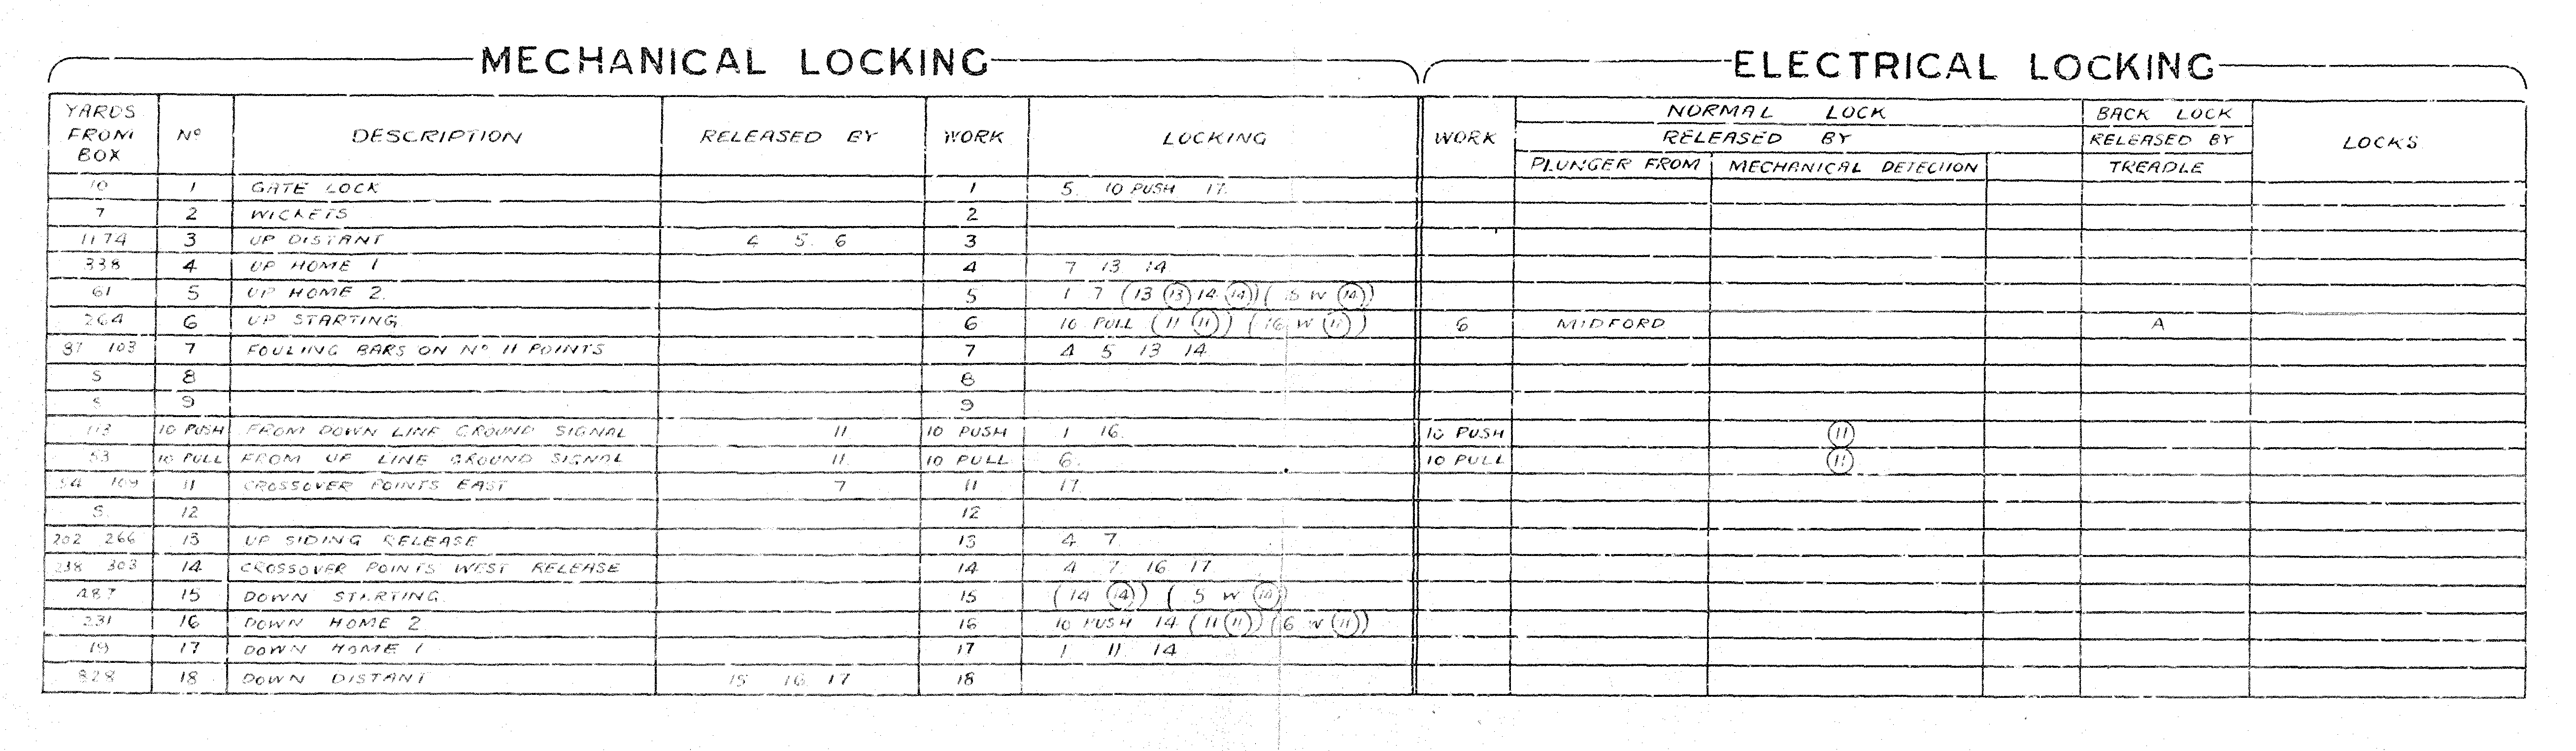 MECHANICAL LOCKING ELECTRICAL LOCKING
YARDS FROM BOX Nº DESCRIPTION RELEASED BY WORK LOCKING WORK NORMAL LOCK RELEASED BY PLUNGER FROM MECHANICAL DETECTION BACK LOCK RELEASED BY TREADLE LOCKS
10 1 GATE LOCK 1 5 10 PUSH 17
7 2 WICKETS 2
1174 3 UP DISTANT 4 5 6 3
338 4 UP HOME 1 4 7 13 14
61 5 UP HOME 2 5 1 7 (13 (13) 14 (14)) (15 W (14))
264 6 UP STARTING 6 10 PULL (11 (11)) (16 W (11)) 6 MIDFORD A
87 103 7 FOULING BARS ON Nº 11 POINTS 7 4 5 13 14
S 8 8
S 9 9
113 10 PUSH FROM DOWN LINE GROUND SIGNAL 11 10 PUSH 1 16 10 PUSH (11)
53 10 PULL FROM UP LINE GROUND SIGNAL 11 10 PULL 6 10 PULL (11)
54 109 11 CROSSOVER POINTS EAST 7 11 17
S 12 12
202 266 13 UP SIDING RELEASE 13 4 7
238 303 14 CROSSOVER POINTS WEST RELEASE 14 4 7 16 17
487 15 DOWN STARTING 15 (14 (14)) (5 W (14))
231 16 DOWN HOME 2 16 10 PUSH 14 (11 (11)) (6 W (11))
19 17 DOWN HOME 1 17 1 11 14
828 18 DOWN DISTANT 15 16 17 18